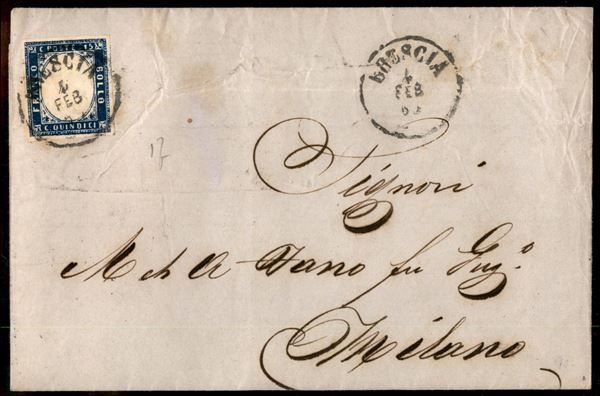 C POSTE 15
FRANCO
BOLLO
C QUINDICI
BRESCIA
4
FEB
BRESCIA
4
FEB
63
17
Signori
M et A fano fu
Milano